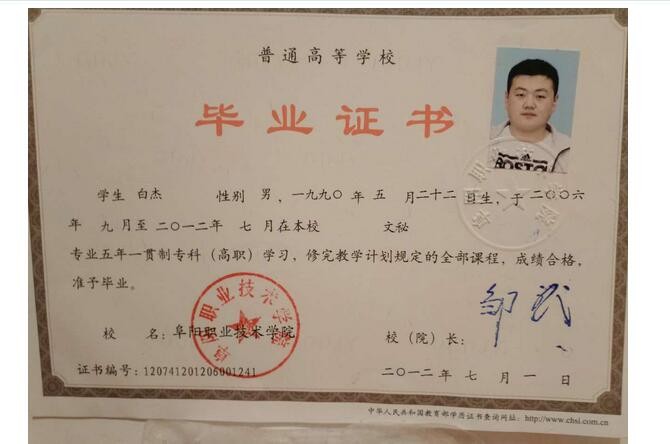 普通高等学校
毕业证书
BOSTO
学生 白杰 性别 男，一九九〇年 五 月二十二日生，于 二〇〇六
年 九 月至 二〇一二年 七 月在本校 文秘
专业五年一贯制专科（高职）学习，修完教学计划规定的全部课程，成绩合格，
准予毕业。
阜阳职业技术学院
校 名：阜阳职业技术学院
校（院）长：
证书编号：120741201206001241
二〇一二年 七 月 一 日
中华人民共和国教育部学历证书查询网址：http://www.chsi.com.cn